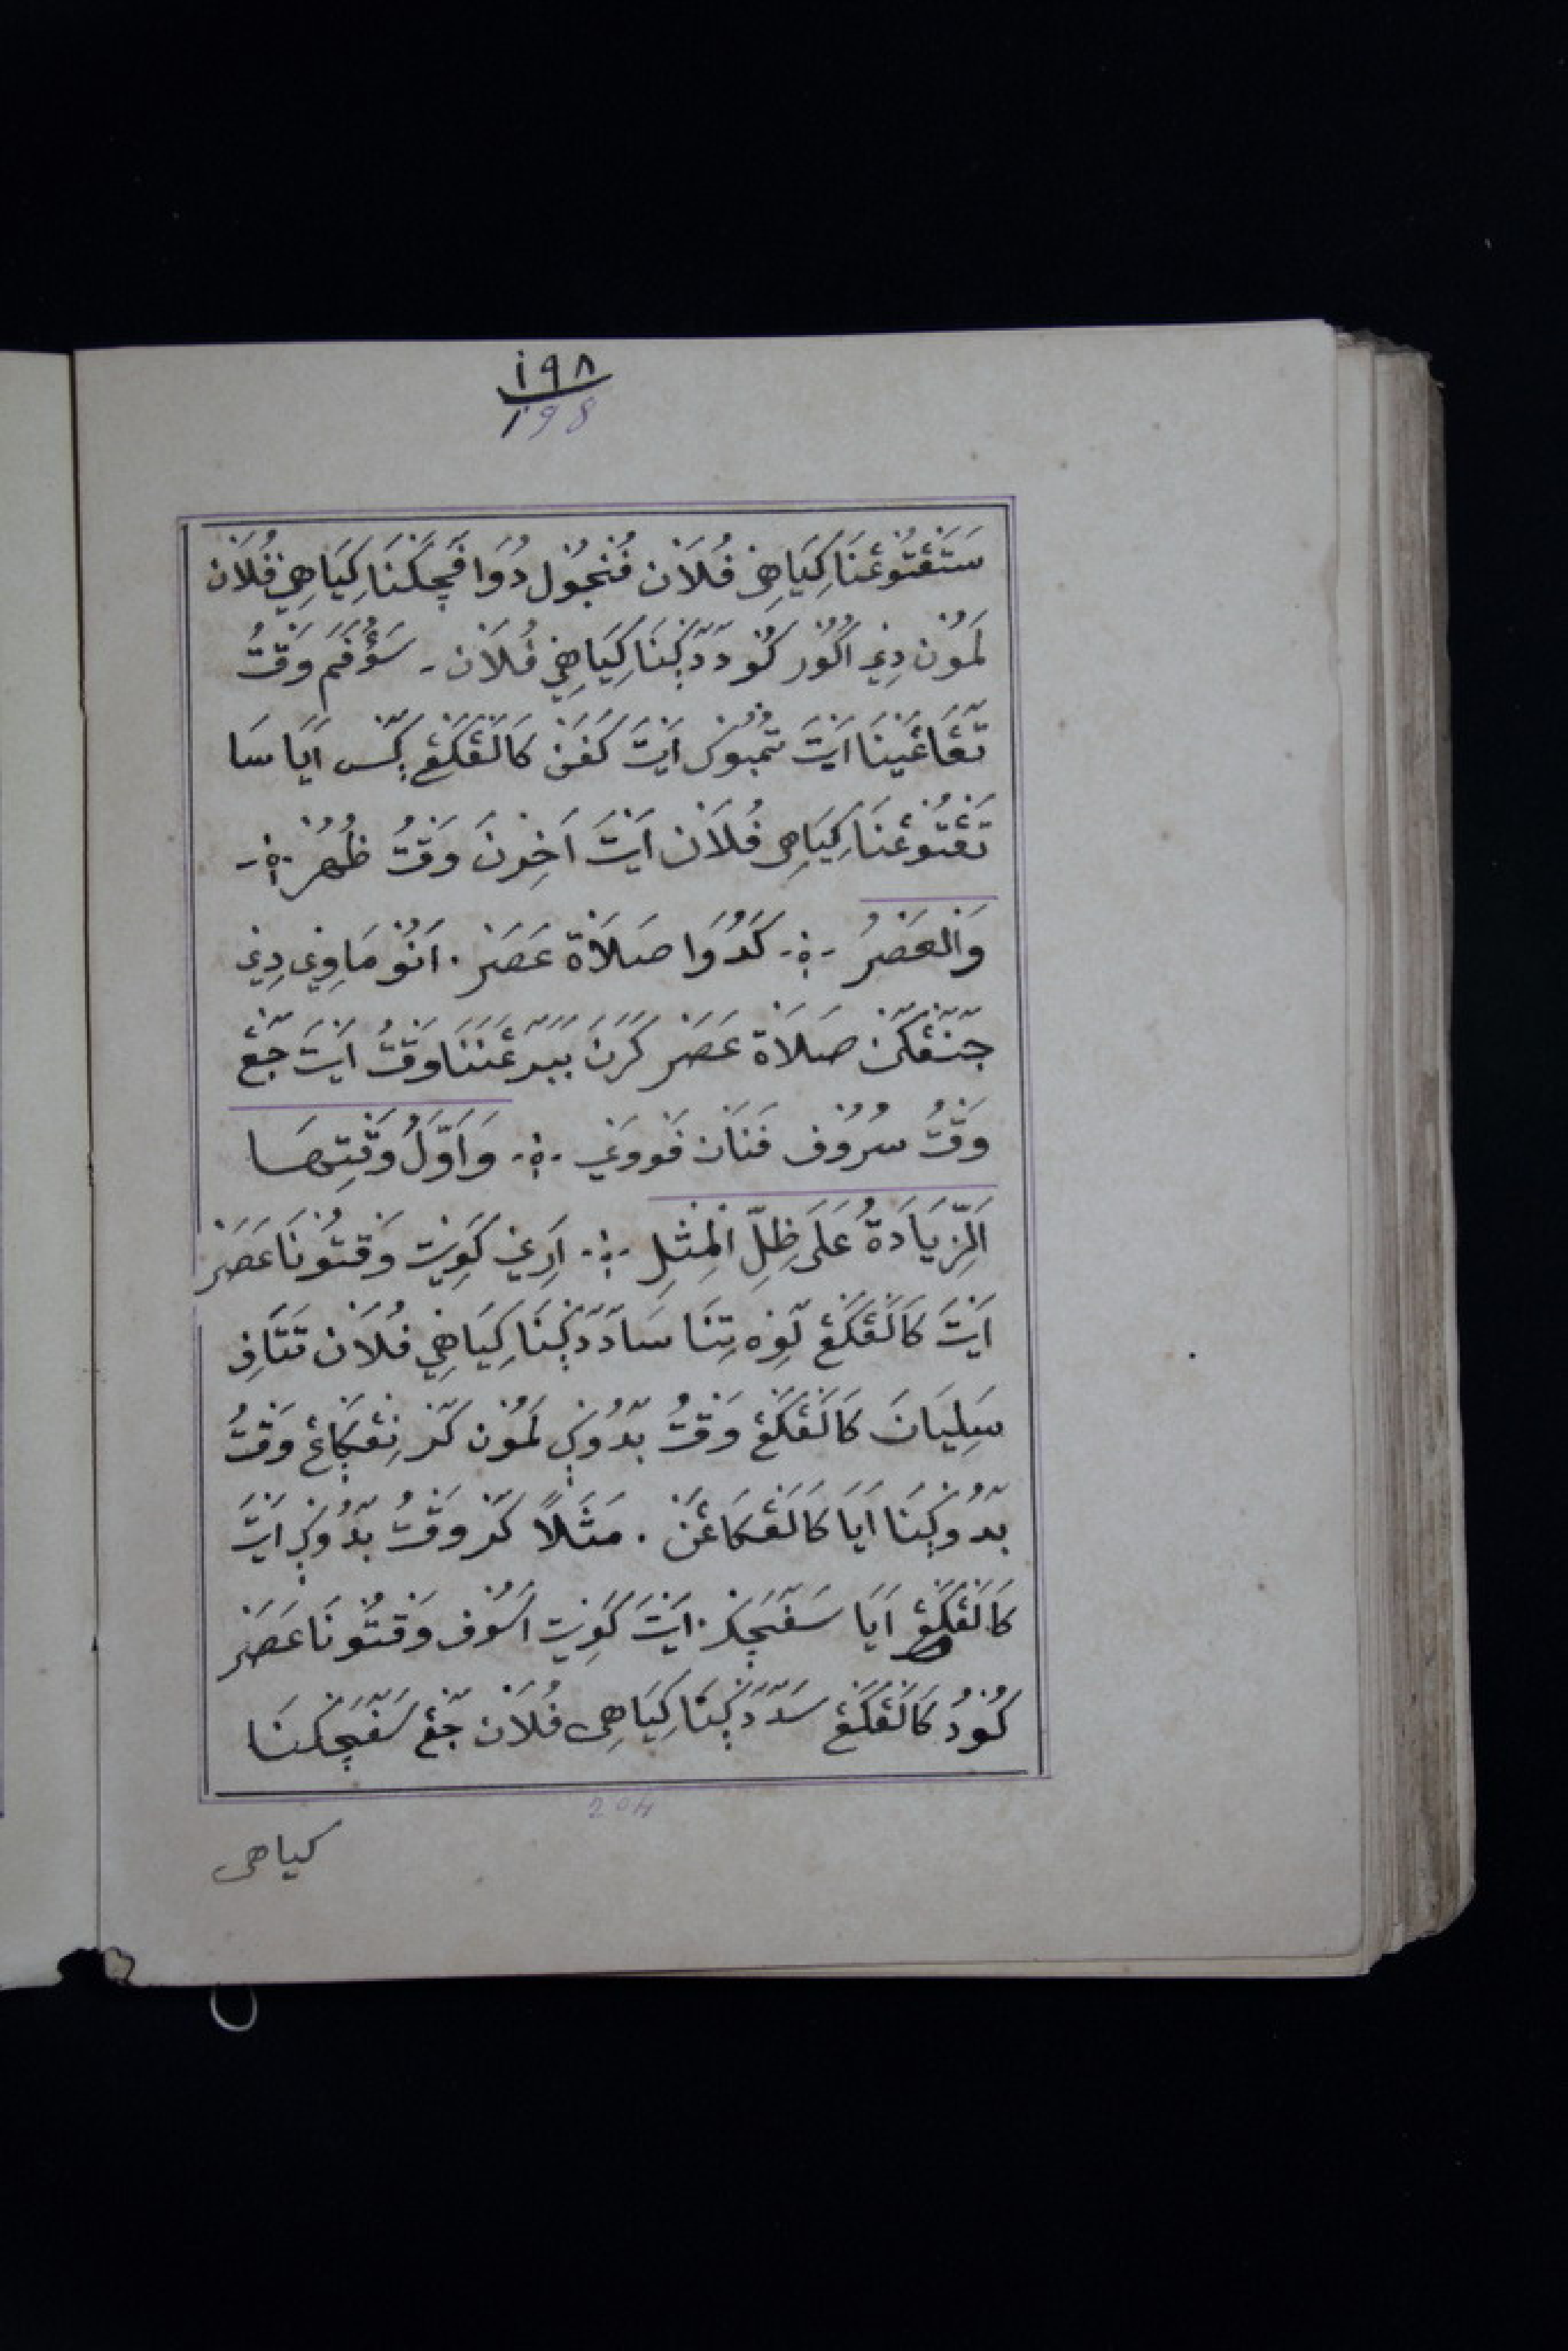 ١٩٨
198
سَتَڠْتُوْڠْنَا كِيَاهِيْ فُلَانْ فُنْجُوْل دُوَا فَچَكْنَا كِيَاهِيْ فُلَانْ
لَمُوْن دِيْ اَكُوْر كُوْدَدَكْنَا كِيَاهِيْ فُلَانْ - سَؤُفَمَ وَقْتُ
تَڠَاڠَيْنَا اَيْتَ تُمْبُوْك اَيْتَ كَفَنْ كَالَڠْكَڠْ بَكَس اَيَا سَا
تَڠْتُوْڠْنَا كِيَاهِى فُلَانْ اَيْتَ اَخِرْنَ وَقْتُ ظُهُرْ
وَالْعَصْرُ - كَدُوَا صَلَاةْ عَصَرْ . اَنُوْ مَاوِيْ دِيْ
جَنَڠْكَنْ صَلَاةْ عَصَرْ كَرَنَ بَبَرَڠَنَنَا وَقْتُ اَيْتَ جَڠْ
وَقْتُ سُرُوْف فَنَانْ فَوَوَيْ - وَاَوَّلُ وَقْتِهَا
اَلزِّيَادَةُ عَلَى ظِلِّ الْمِثْلِ - اَرِيْ كَوِيْت وَقْتُوْنَا عَصَرْ
اَيْتَ كَالَڠْكَڠْ لَوِيْه تِنَا سَادَدَكْنَا كِيَاهِيْ فُلَانْ تَتَافِ
سَلِيَانَ كَالَڠْكَڠْ وَقْتُ بَدُوْكِ لَمُوْن كَرْ نِڠْكَاڠْ وَقْتُ
بَدُوْكِنَا اَيَا كَالَڠْكَاڠَنْ . مَثَلًا كَرْ وَقْتُ بَدُوْكِ اَيْتَ
كَالَڠْكَڠْ اَيَا سَفَچَكْ . اَيْتَ كَوِيْت اَسُوْف وَقْتُوْنَا عَصَرْ
كُوْدُ كَالَڠْكَڠْ سَدَدَكْنَا كِيَاهِى فُلَانْ جَڠْ سَفَچَكْنَا
204
كياهى